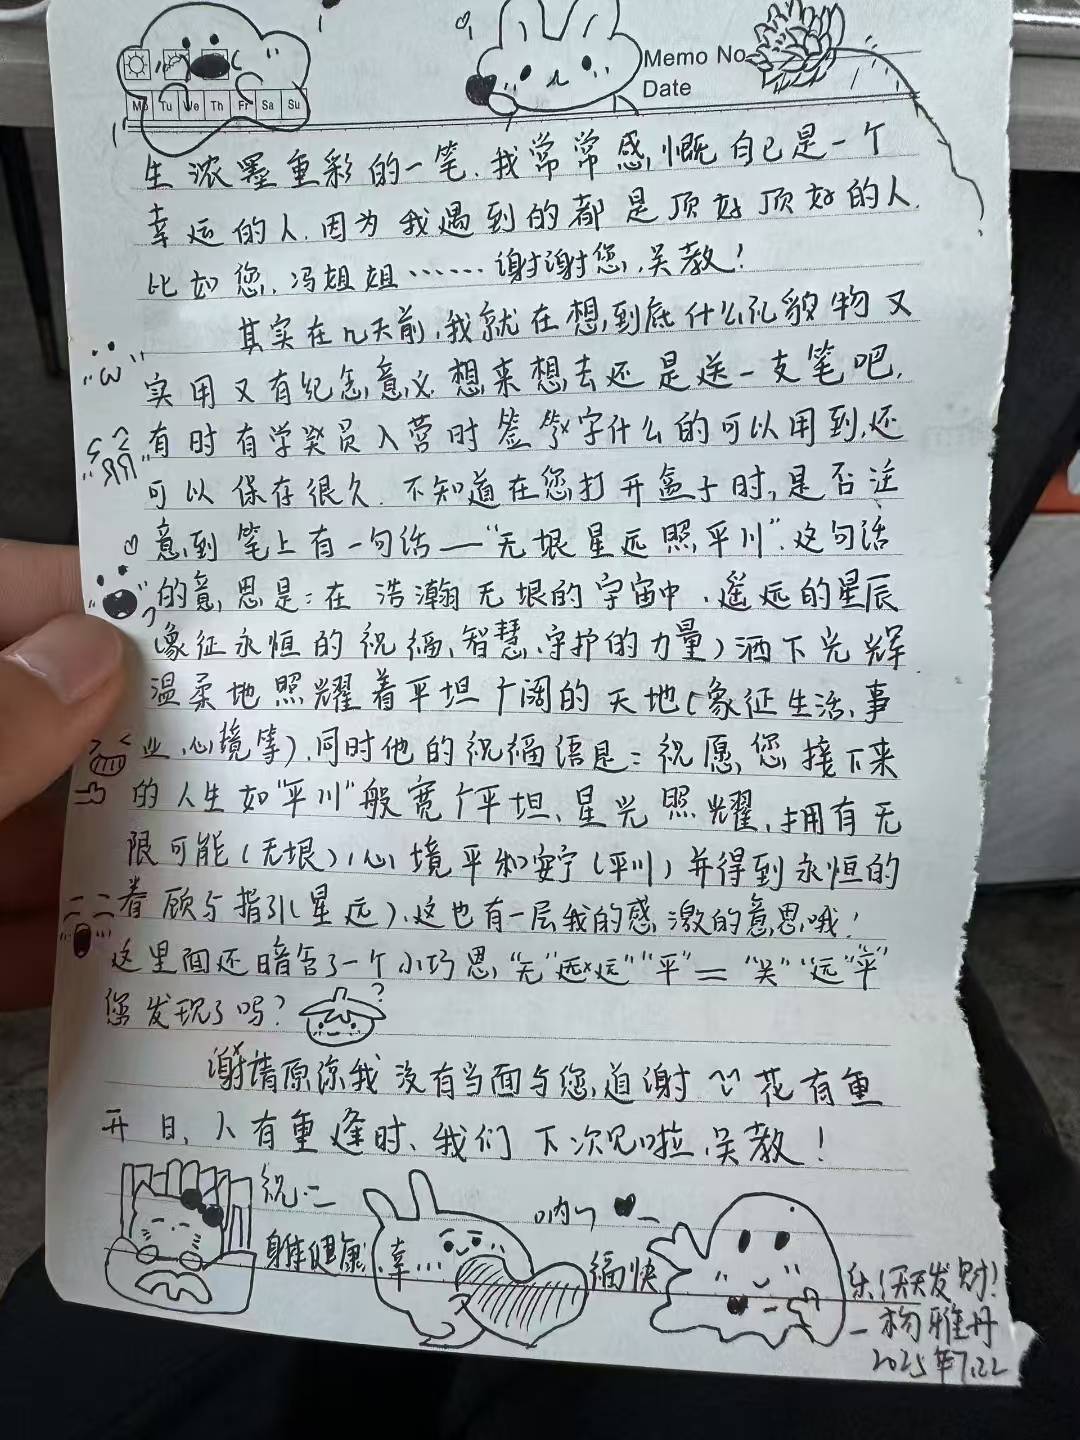 Memo No
Date
Mo Tu We Th Fr Sa Su
生浓墨重彩的一笔.我常常感慨自己是一个
幸运的人.因为我遇到的都是顶好顶好的人.
比如您,冯姐姐……谢谢您,吴教!
其实在几天前,我就在想,到底什么礼物又
实用又有纪念意义.想来想去还是送一支笔吧.
有时有学员入营时签字什么的可以用到,还
可以保存很久.不知道在您打开盒子时,是否注
意到笔上有一句话——“无垠星远照平川”.这句话
的意思是:在浩瀚无垠的宇宙中,遥远的星辰
(象征永恒的祝福,智慧,守护的力量)洒下光辉
温柔地照耀着平坦广阔的天地(象征生活,事
业,心境等).同时他的祝福语是:祝愿您接下来
的人生如“平川”般宽广平坦、星光照耀,拥有无
限可能(无垠),心境平和安宁(平川)并得到永恒的
眷顾与指引(星远).这也有一层我的感激的意思哦!
这里面还暗含了一个小巧思,“无”“远”“平”=“吴”“远”“平”
您发现了吗?
?
请原谅我没有当面与您道谢 花有重
开日、人有重逢时、我们下次见啦,吴教!
祝:
身体健康 幸…福 快乐(天天发财!
—杨雅丹
2025年7.22